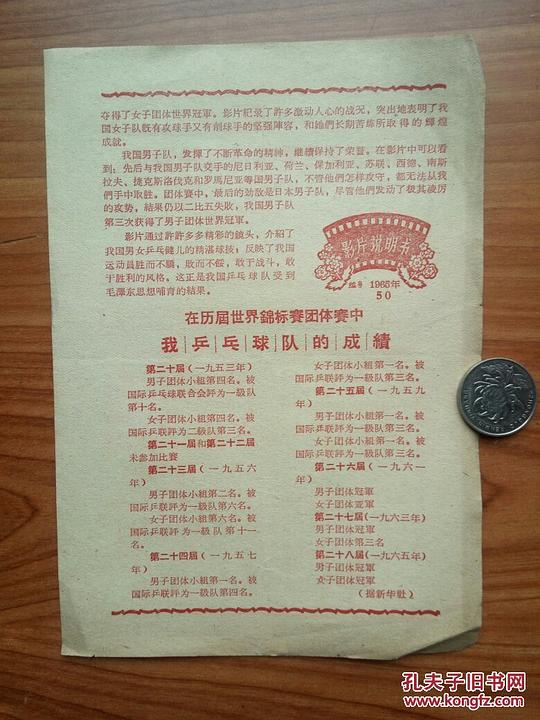 夺得了女子团体世界冠軍。影片紀录了許多激动人心的战况，突出地表明了我
国女子队既有攻球手又有削球手的坚强陣容，和她們长期苦練所取得的輝煌
成就。
我国男子队，发揮了不断革命的精神，継續保持了荣誉。在影片中可以看
到，先后与我国男子队交手的尼日利亚、荷兰、保加利亚、苏联、西德、南斯
拉夫、捷克斯洛伐克和罗馬尼亚等国男子队，不管他們怎样攻守，都无法从我
們手中取胜。团体賽中，最后的劲敌是日本男子队，尽管他們发动了极其凌厉
的攻势，結果仍以二比五失敗，我国男子队
第三次获得了男子团体世界冠軍。
影片通过許許多多精彩的鏡头，介紹了
我国男女乒乓健儿的精湛球技；反映了我国
运动員胜而不驕，敗而不餒，敢于战斗，敢
于胜利的风格。这正是我国乒乓球队受到
毛澤东思想哺育的結果。
影片说明书
編号 1965年
50
在历屆世界錦标賽团体賽中
我乒乓球队的成績
第二十屆（一九五三年）
男子团体小組第四名。被
国际乒乓球联合会評为一級队
第十名。
女子团体小組第四名。被
国际乒联評为二級队第三名。
第二十一屆和第二十二屆
未參加比賽
第二十三屆（一九五六
年）
男子团体小組第二名。被
国际乒联評为一級队第六名。
女子团体小組第六名。被
国际乒联評为一級队第十一
名。
第二十四屆（一九五七
年）
男子团体小組第一名。被
国际乒联評为一級队第四名。
女子团体小組第一名。被
国际乒联評为一級队第三名。
第二十五屆（一九五九
年）
男子团体小組第一名。被
国际乒联評为一級队第三名。
女子团体小組第一名。被
国际乒联評为一級队第三名。
第二十六屆（一九六一
年）
男子团体冠軍
女子团体亚軍
第二十七屆（一九六三年）
男子团体冠軍
女子团体第三名
第二十八屆（一九六五年）
男子团体冠軍
女子团体冠軍
（据新华社）
孔夫子旧书网